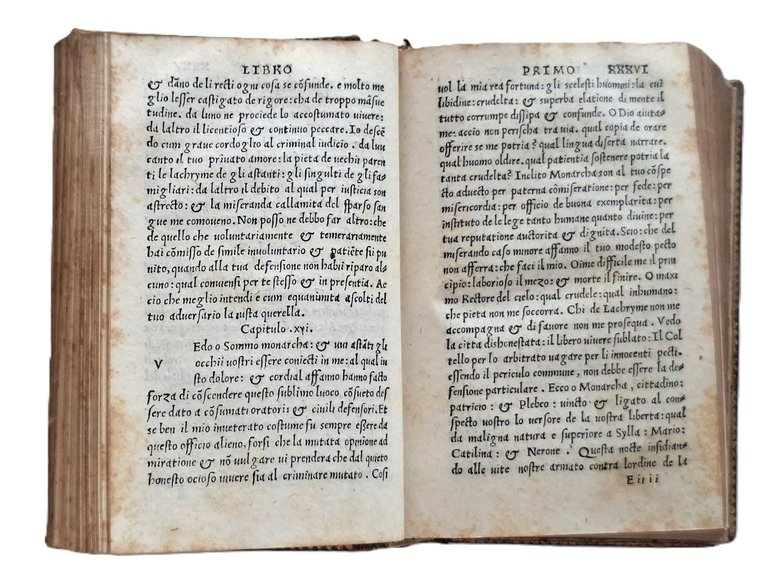 LIBRO
& dãno de li recti ogni cosa se cõfunde. e molto me
glio lesser castigato de rigore: cha de troppo mãsue
tudine. da luno ne prociede lo accostumato viuere:
da laltro il licentioso & continuo peccare. Io descẽ
do cum graue cordoglio al criminal iudicio. da luu
canto il tuo priuato amore: la pieta de uechii paren
ti le lachryme de gli astanti: gli singulti de gli fa-
migliari: da laltro il debito al qual per iusticia son
astrecto: & la miseranda callamita del sparso san
gue me comoueno. Non posso ne debbo far altro: che
de quello che voluntariamente & temerariamente
hai cõmisso de simile inuoluntario & patiẽte sii pu
nito, quando alla tua defensione non habii riparo al
cuno: qual conuiensi per te stesso & in presentia. Ac
cio che meglio intendi e cum equanimita ascolti del
tuo aduersario la iusta querella.
Capitulo .xvi.
V Edo o Sommo monarcha: & vui astãti gli
occhii vostri essere coniecti in me: al qual iu
sto dolore: & cordial affanno hanno facto
forza di cõscendere questo sublimo luoco cõsueto des
sere dato a cõsumati oratori: & ciuili defensori. Et
se ben il mio inueterato costume su sempre essere da
questo officio alieno, forsi che la mutata opinione ad
miratione & nõ vulgare vi prendera che dal quieto
honesto ocioso viuere sia al criminare mutato. Cosi
PRIMO XXXVI
vol la mia rea fortuna: gli scelesti huomini: la cui
libidine: crudelta: & superba elatione di mente il
tutto corrumpe dissipa & confunde. O Dio aiuta-
me: accio non perischa tra via. qual copia de orare
offerire se me potria? qual lingua diserta narrare.
qual huomo oldire. qual patientia sostenere potria la
tanta crudelta? Inclito Monarcha son al tuo cõspe
cto aducto per paterna cõmiseratione: per fede: per
misericordia: per officio de buona exemplarita: per
instituto de le lege tanto humane quanto diuine: per
tua reputatione auctorita & dignita. Scio: che del
miserando caso minore affanno il tuo modesto pecto
non afferra: che faci il mio. Oime difficile me il prin
cipio: laborioso il mezo: & morte il finire. O maxi
mo Rectore del cielo: qual crudele: qual inhumano:
che pieta non me soccorra. Chi de Lachryme non me
accompagna & di fauore non me prosequa. Vedo
la citta dishonestata: il libero viuere sublato: Il Col
tello per lo arbitrato vagare per li innocenti pecti.
essendo il periculo commune, non debbe essere la de-
fensione particulare. Ecco o Monarcha, cittadino:
patricio: & Plebeo: vincto & ligato al con-
specto vostro lo versore de la vostra liberta: qual
da maligna natura e superiore a Sylla: Mario:
Catilina: & Nerone. Questa nocte insidian-
do alle vite nostre armato contra lordine de la
E iiii